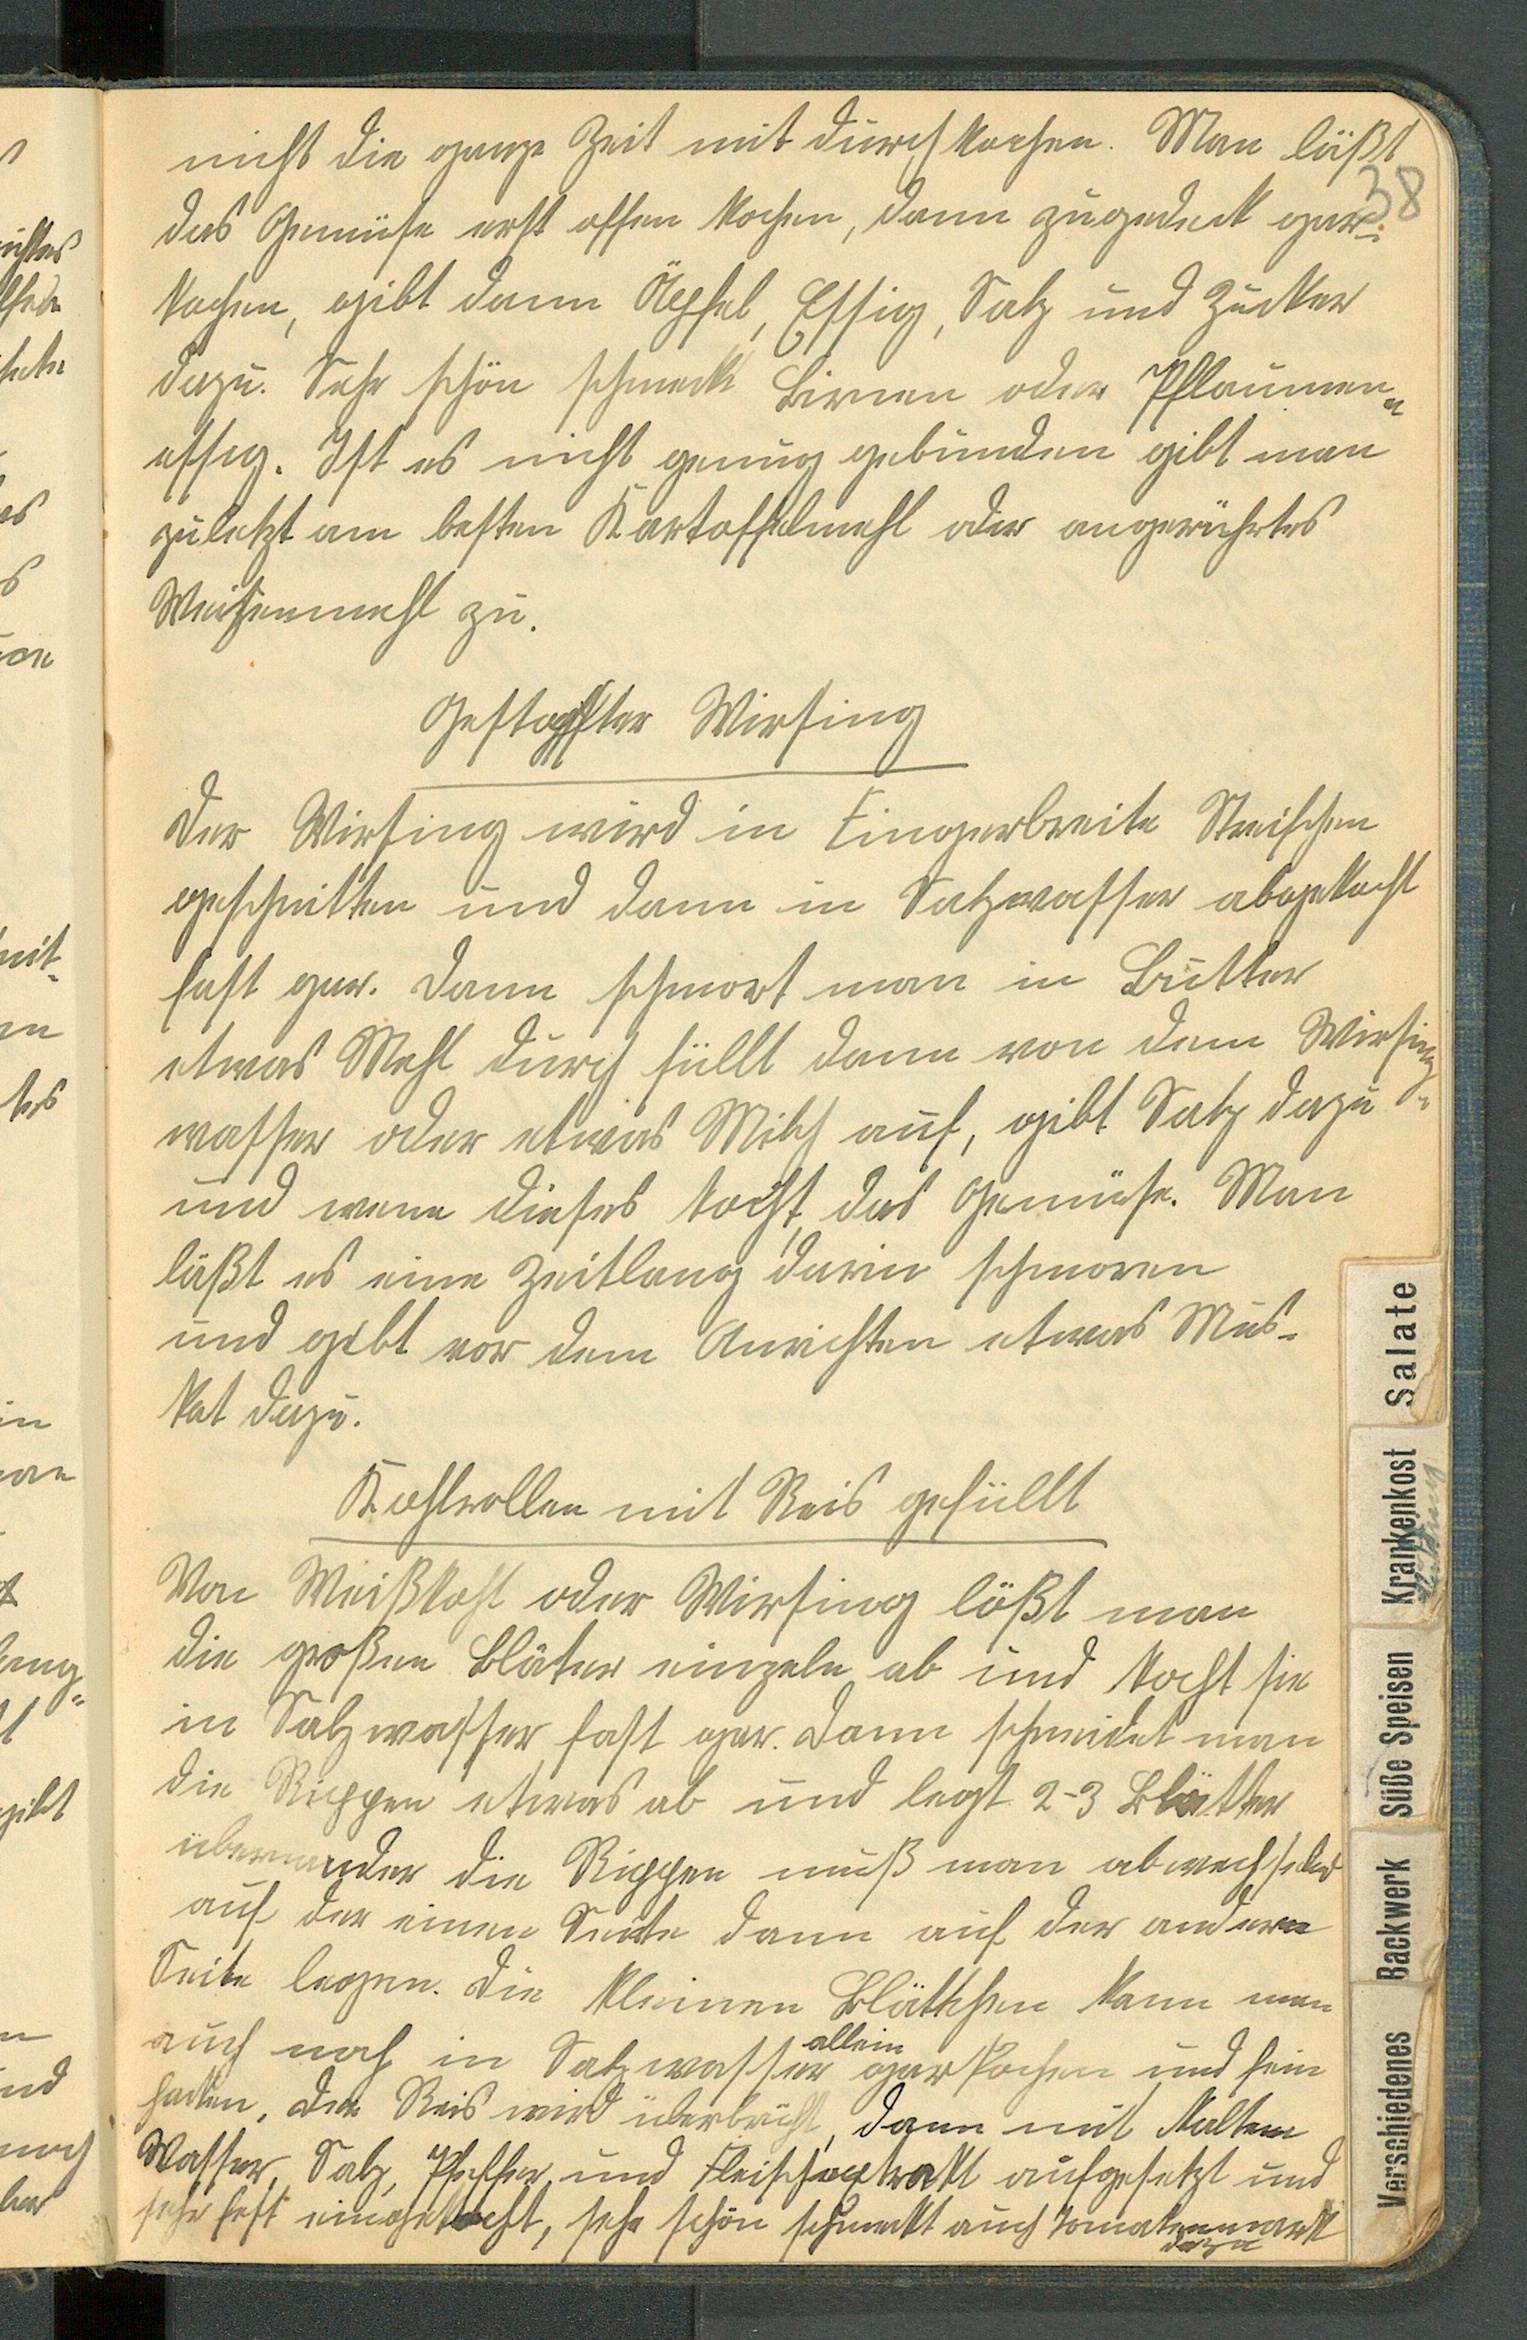 nicht die ganze Zeit mit durchkochen. Man läßt
38
das Gemüse erst offen kochen, dann zugedeck gar-
kochen, gibt dann Äpfel, Essig, Salz und Zucker
dazu. Sehr schön schmeckt Birnen oder Pflaumen-
essig. Ist es nicht genug gebunden gibt man
zuletzt am besten Kartoffelmehl oder angerührtes
Weizenmehl zu.
Gestopfter Wirsing
Der Wirsing wird in Fingerbreite Streifchen
geschnitten und dann in Salzwasser abgekocht
fast gar. Dann schmort man in Butter
etwas Mehl durch füllt dann von dem Wirsing-
wasser oder etwas Milch auf, gibt Salz dazu
und wenn dieses kocht, das Gemüse. Man
läßt es eine Zeitlang darin schmoren
und gibt vor dem Anrichten etwas Mus-
kat dazu.
Kohlrollen mit Reis gefüllt
Von Weißkohl oder Wirsing lößt man
die großen Bläter einzeln ab und kocht sie
in Salzwasser fast gar. Dann schneidet man
die Rippen etwas ab und legt 2-3 Blätter
übereinander die Rippen muß man abwechselnd
auf der einen Seite dann auf der andern
Seite legen. Die kleinen Blättchen kann man
auch noch in Salzwasser allein garkochen und fein
hacken. Der Reis wird überbrüht, dann mit kaltem
Wasser, Salz, Pfeffer, und Fleischextrakt aufgesetzt und
sehr fest eingekocht, sehr schön schmeckt auch Tomatenmark
dazu
Salate
Krankenkost
Süße Speisen
Backwerk
Verschiedenes